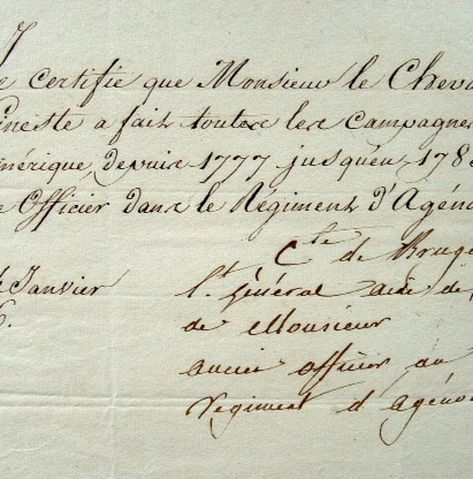 e certifie que Monsieur le Cheva
Gineste a fait toutes les campagne
mérique, depuis 1777 jusqu'en 178
Officier dans le Régiment d'Agéno
Cte de Bruge
Janvier
lt. général aide de
de Monsieur
ancien officier au
régiment d'agéno